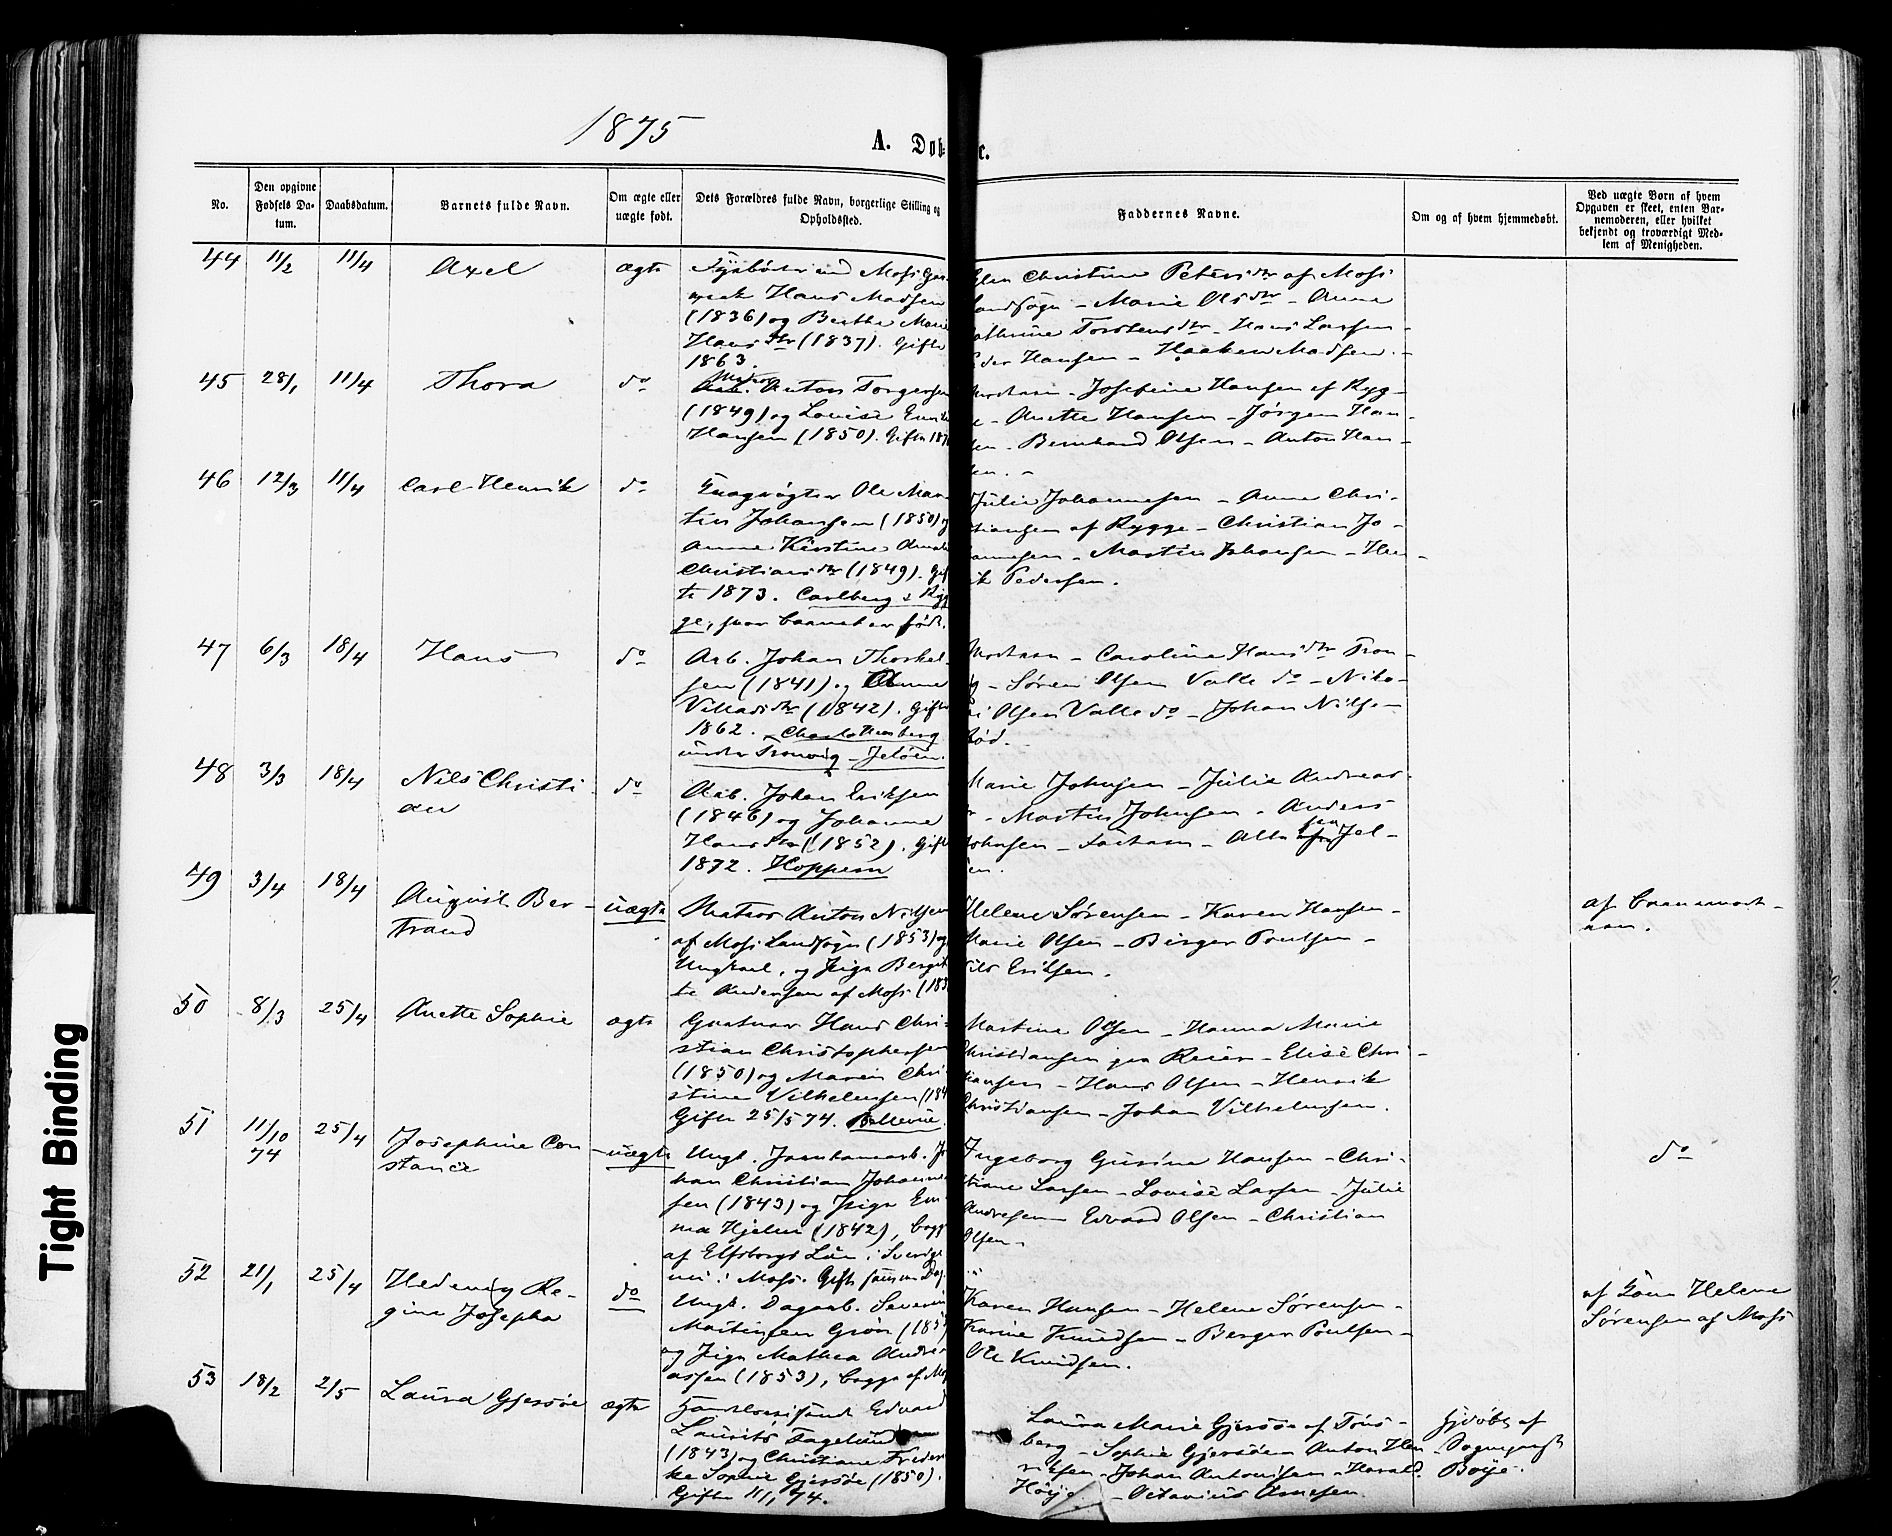 1875
A. Døbte.
No.
Den opgivne Fødsels Datum.
Daabsdatum.
Barnets fulde Navn.
Om ægte eller uægte født.
Dets Forældres fulde Navn, borgerlige Stilling og Opholdssted.
Faddernes Navne.
Om og af hvem hjemmedøbt.
Ved uægte Børn af hvem Opgaven er skeet, enten Barnemoderen, eller hvilket bekjendt og troværdigt Medlem af Menigheden.
44 11/2 11/4 Axel ægte
Hans Madsen
(1836) og Berthe Marie
Hansdtr (1837). Gifte
1863.
Christine Petersdtr af Moss
Landsogn - Marie Olsdtr - Anne
Cathrine Torstensdtr - Hans Larsen -
Peder Hansen - Haaken Madsen. -
45 28/1 11/4 Thora do
Anton Torgersen
(1849) og Lovise
Hansen (1850). Gifte
Josefine Hansen af Ryg-
ge - Anette Hansen - Jørgen Han-
sen - Bernhard Olsen - Anton Han-
sen. -
46 12/3 11/4 Carl Henrik do
Ole Mar-
tin Johansen (1850) og
Anne Kirstine
Christiansdtr (1849). Gif-
te 1873. Carlberg i Ryg-
ge, hvor barnet er født.
Julie Johannesen - Anne Chri-
stiansen af Rygge - Christian Jo-
hannesen - Martin Johansen - Hen-
rik Pedersen.
47 6/3 18/4 Hans do
Arb. Johan Thorkel-
sen (1841) og Anne
Villadsdtr (1842). Gifte
1862. Charlottenberg
under Tronvig - Jeløen.
Modren - Caroline Hansdtr Tron-
vig - Søren Olsen Valle do - Niko-
lai Olsen Valle do - Johan Nilse-
rød.
48 3/3 18/4 Nils Christi-
an do
Arb. Johan Eriksen
(1846) og Johanne
Hansdtr (1852). Gifte
1872. Hoppern
Marie Johnsen - Julie Andreas-
- Martin Johnsen - Anders
Johnsen - Faderen - Alle fra Jel-
øen.
49 3/4 18/4 August Ber-
trand uægte
Matros Anton Nilsen
af Moss Landsogn (1853) og
Ungkarl, og Pige Bergit-
te Andersen af Moss
Helene Sørensen - Karen Hansen -
Marie Olsen - Birger Poulsen -
Nils Eriksen.
af
50 8/3 25/4 Anette Sophie ægte
Gartner Hans Chri-
stian Christophersen
(1850) og Maren Chri-
stine Vilhelmsen
Gifte 25/5 74. Bellevue.
Martine Olsen - Hanna Marie
Christiansen fra Reier - Elise Chri-
stiansen - Hans Olsen - Henrik
Christiansen - Johan Vilhelmsen.
51 11/10 74 25/4 Josephine Con-
stance uægte
Ungk. Jernbanearb. Jo-
han Christian Johanne-
sen (1843) og Pige Em-
ma Hjelm (1842), begge
af Elfsborgs Län i Sverige
nu i Moss. Gifte samme Dag.
Ingeborg Gurine Hansen - Chri-
stiane Larsen - Lovise Larsen - Julie
Andresen Edvard Olsen - Christian
Olsen -
do
52 21/1 25/4 Hedevig Re-
gine Josepha do
Ungk. Dagarb. Severin
Martinsen Grøn
og Pige Mathea Andre-
assen (1853), begge af Moss
Karen Hansen - Helene Sørensen -
Karine Knudsen - Berger Poulsen -
Ole Knudsen.
af Helene
Sørensen af Moss
53 18/2 2/5 Laura Gjersøe ægte
Edvard
Laurits Fagelund
(1843) og Christiane Frederi-
ke Sophie Gjersøe (1850).
Gifte 11/1 74.
Laura Marie Gjersøe af Tøns-
berg - Sophie Gjersøe Anton Hen-
riksen - Johan Antonisen - Harald
- Octavius Arnesen.
Hjdøbt af
Sognepræst
Boye.
Tight Binding